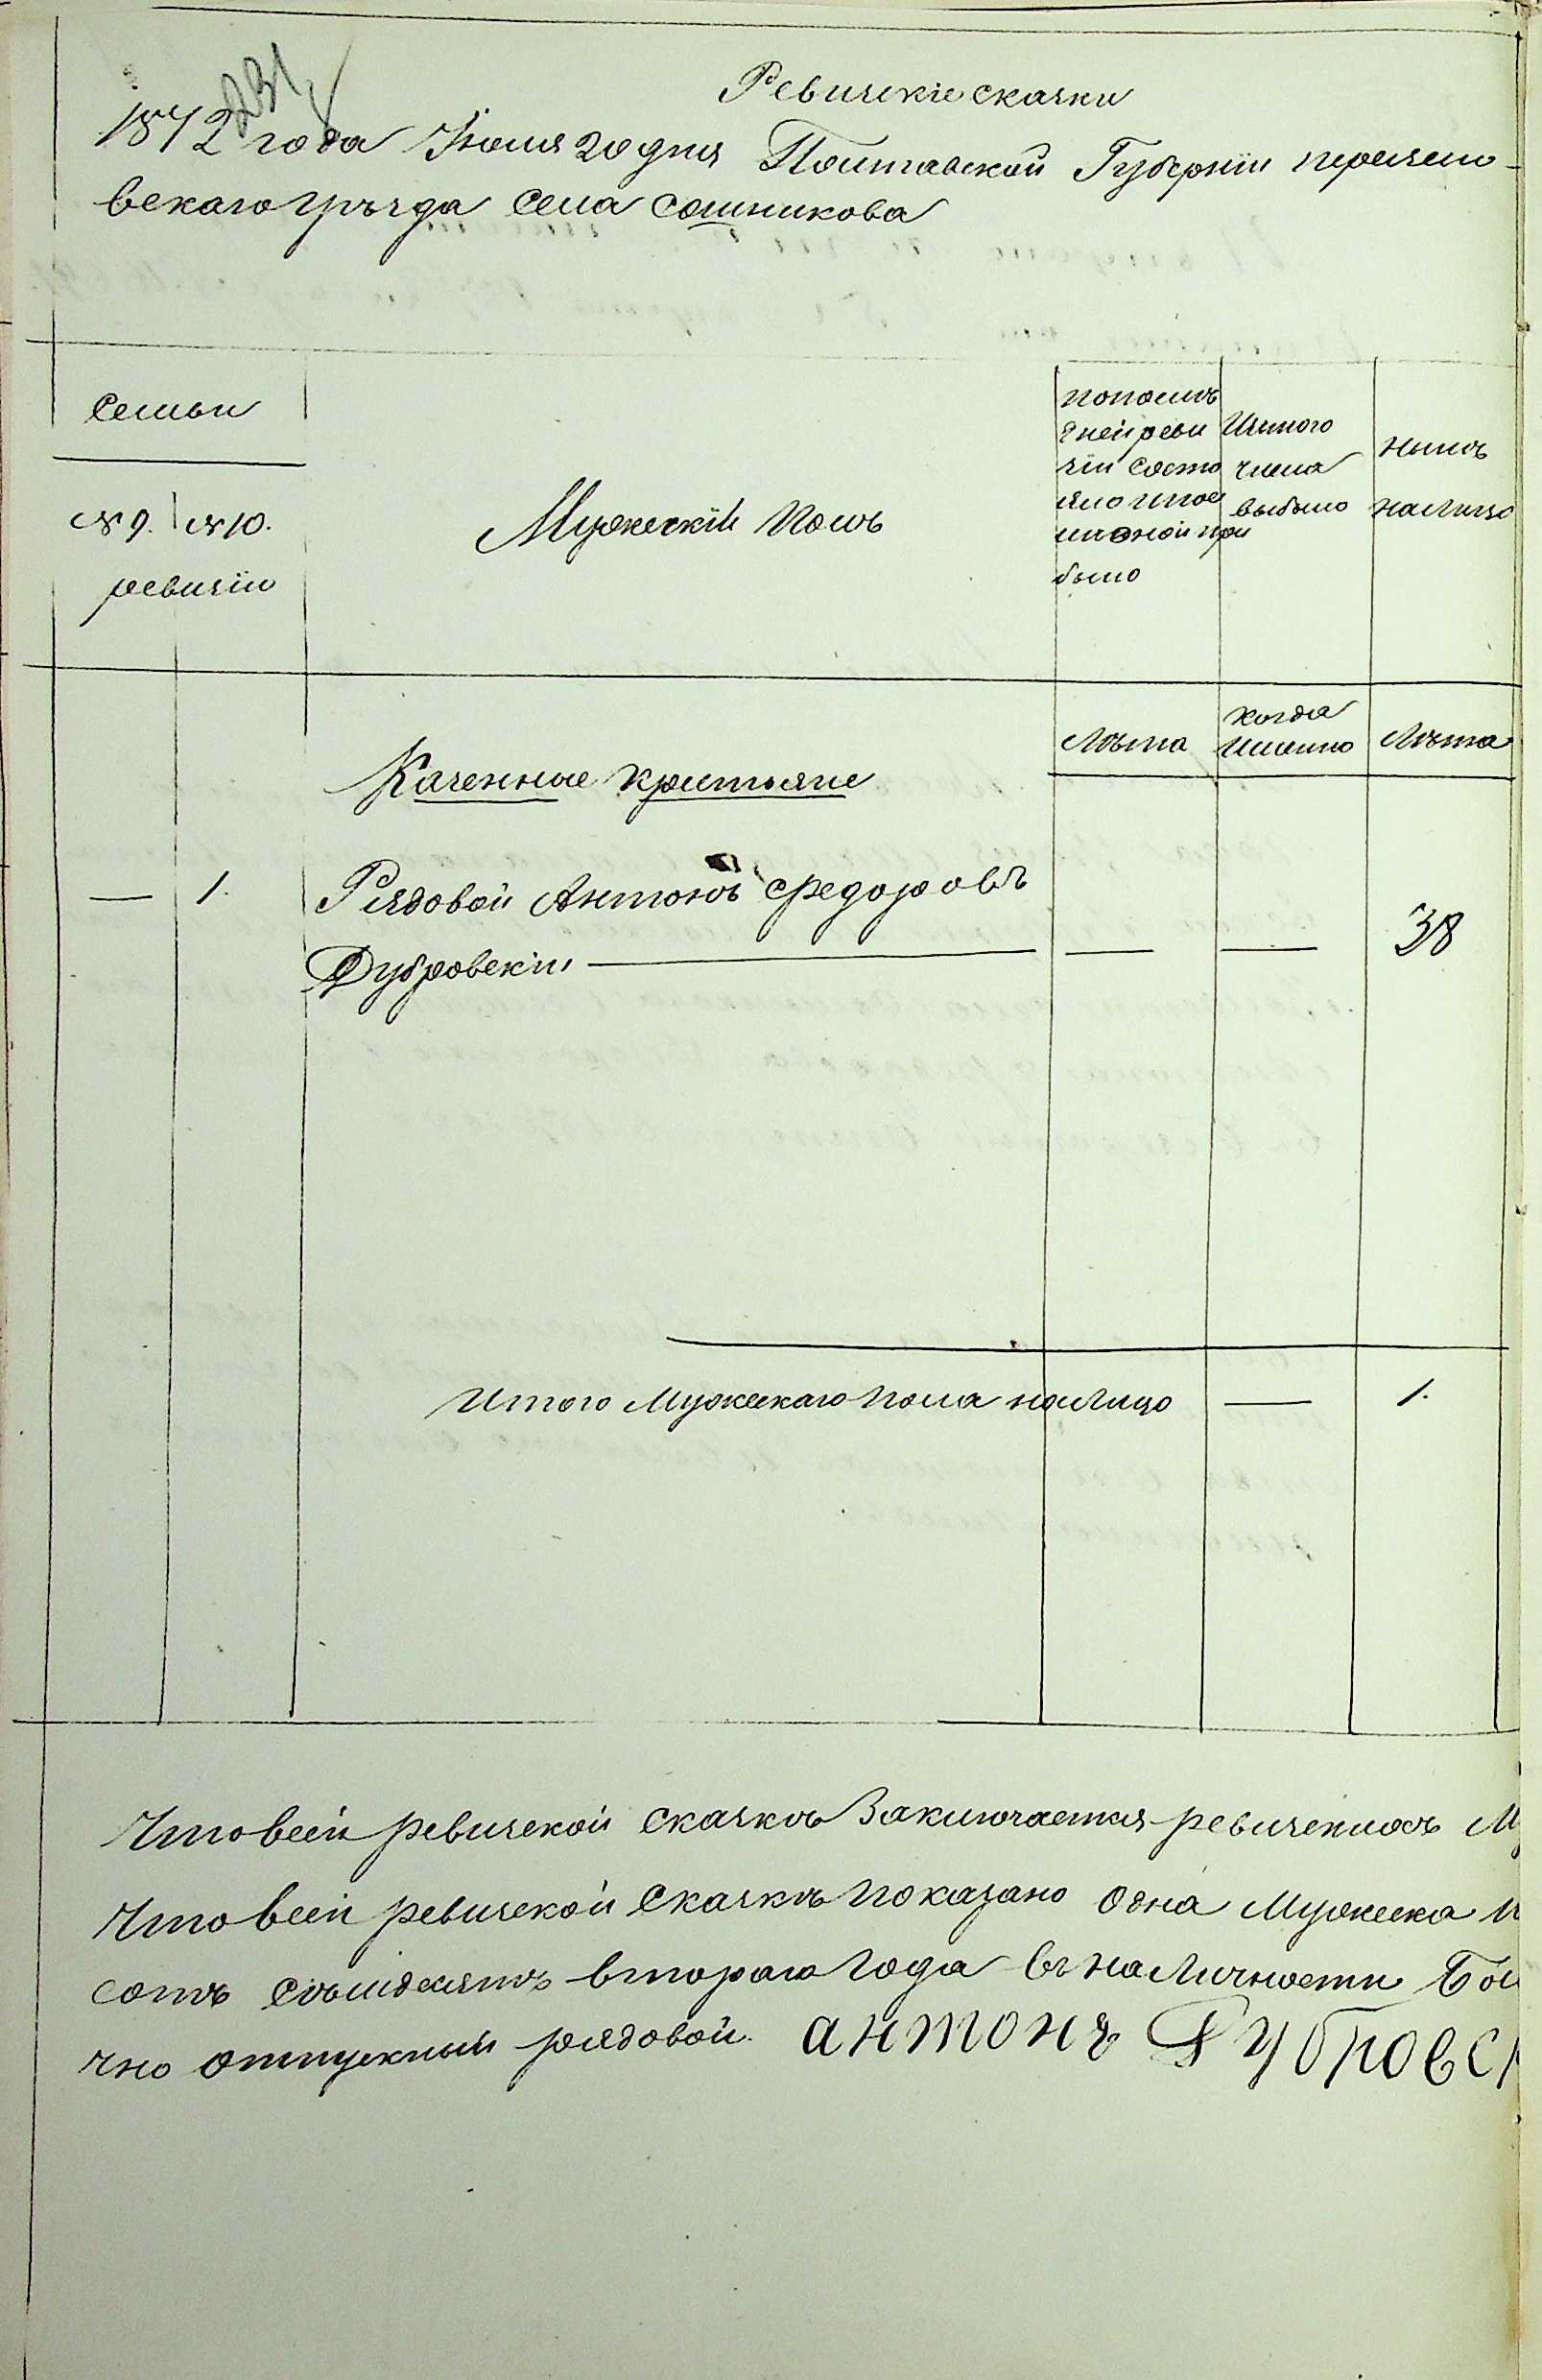 231
Ревизскіе сказки
1872 года Июля 20 дня Полтавской Губернїи переясло-
вскаго уѣзда села сошникова
Семьи
№ 9. № 10.
ревизїи
Мужескїй полъ
попослѣ
дней реви
зїи состо
яло ипос
лѣ оной при
было
Изтого
числа
выбыло
нынѣ
налицо
Лѣта
когда
Именно
Лѣта
Казенные крестьяне
— 1. Рядовой Антонъ Федоровъ
Дубровскій — — — 38
Итого Мужескаго пола налицо — 1.
Что всей ревизской сказкѣ Заключается ревизскихъ М
Что всей ревизской Сказкѣ показано одна Мужеска п
сотъ семьдесятъ втораго года въ наличности Бо
чно отпускный рядовой. антонъ Дубровск